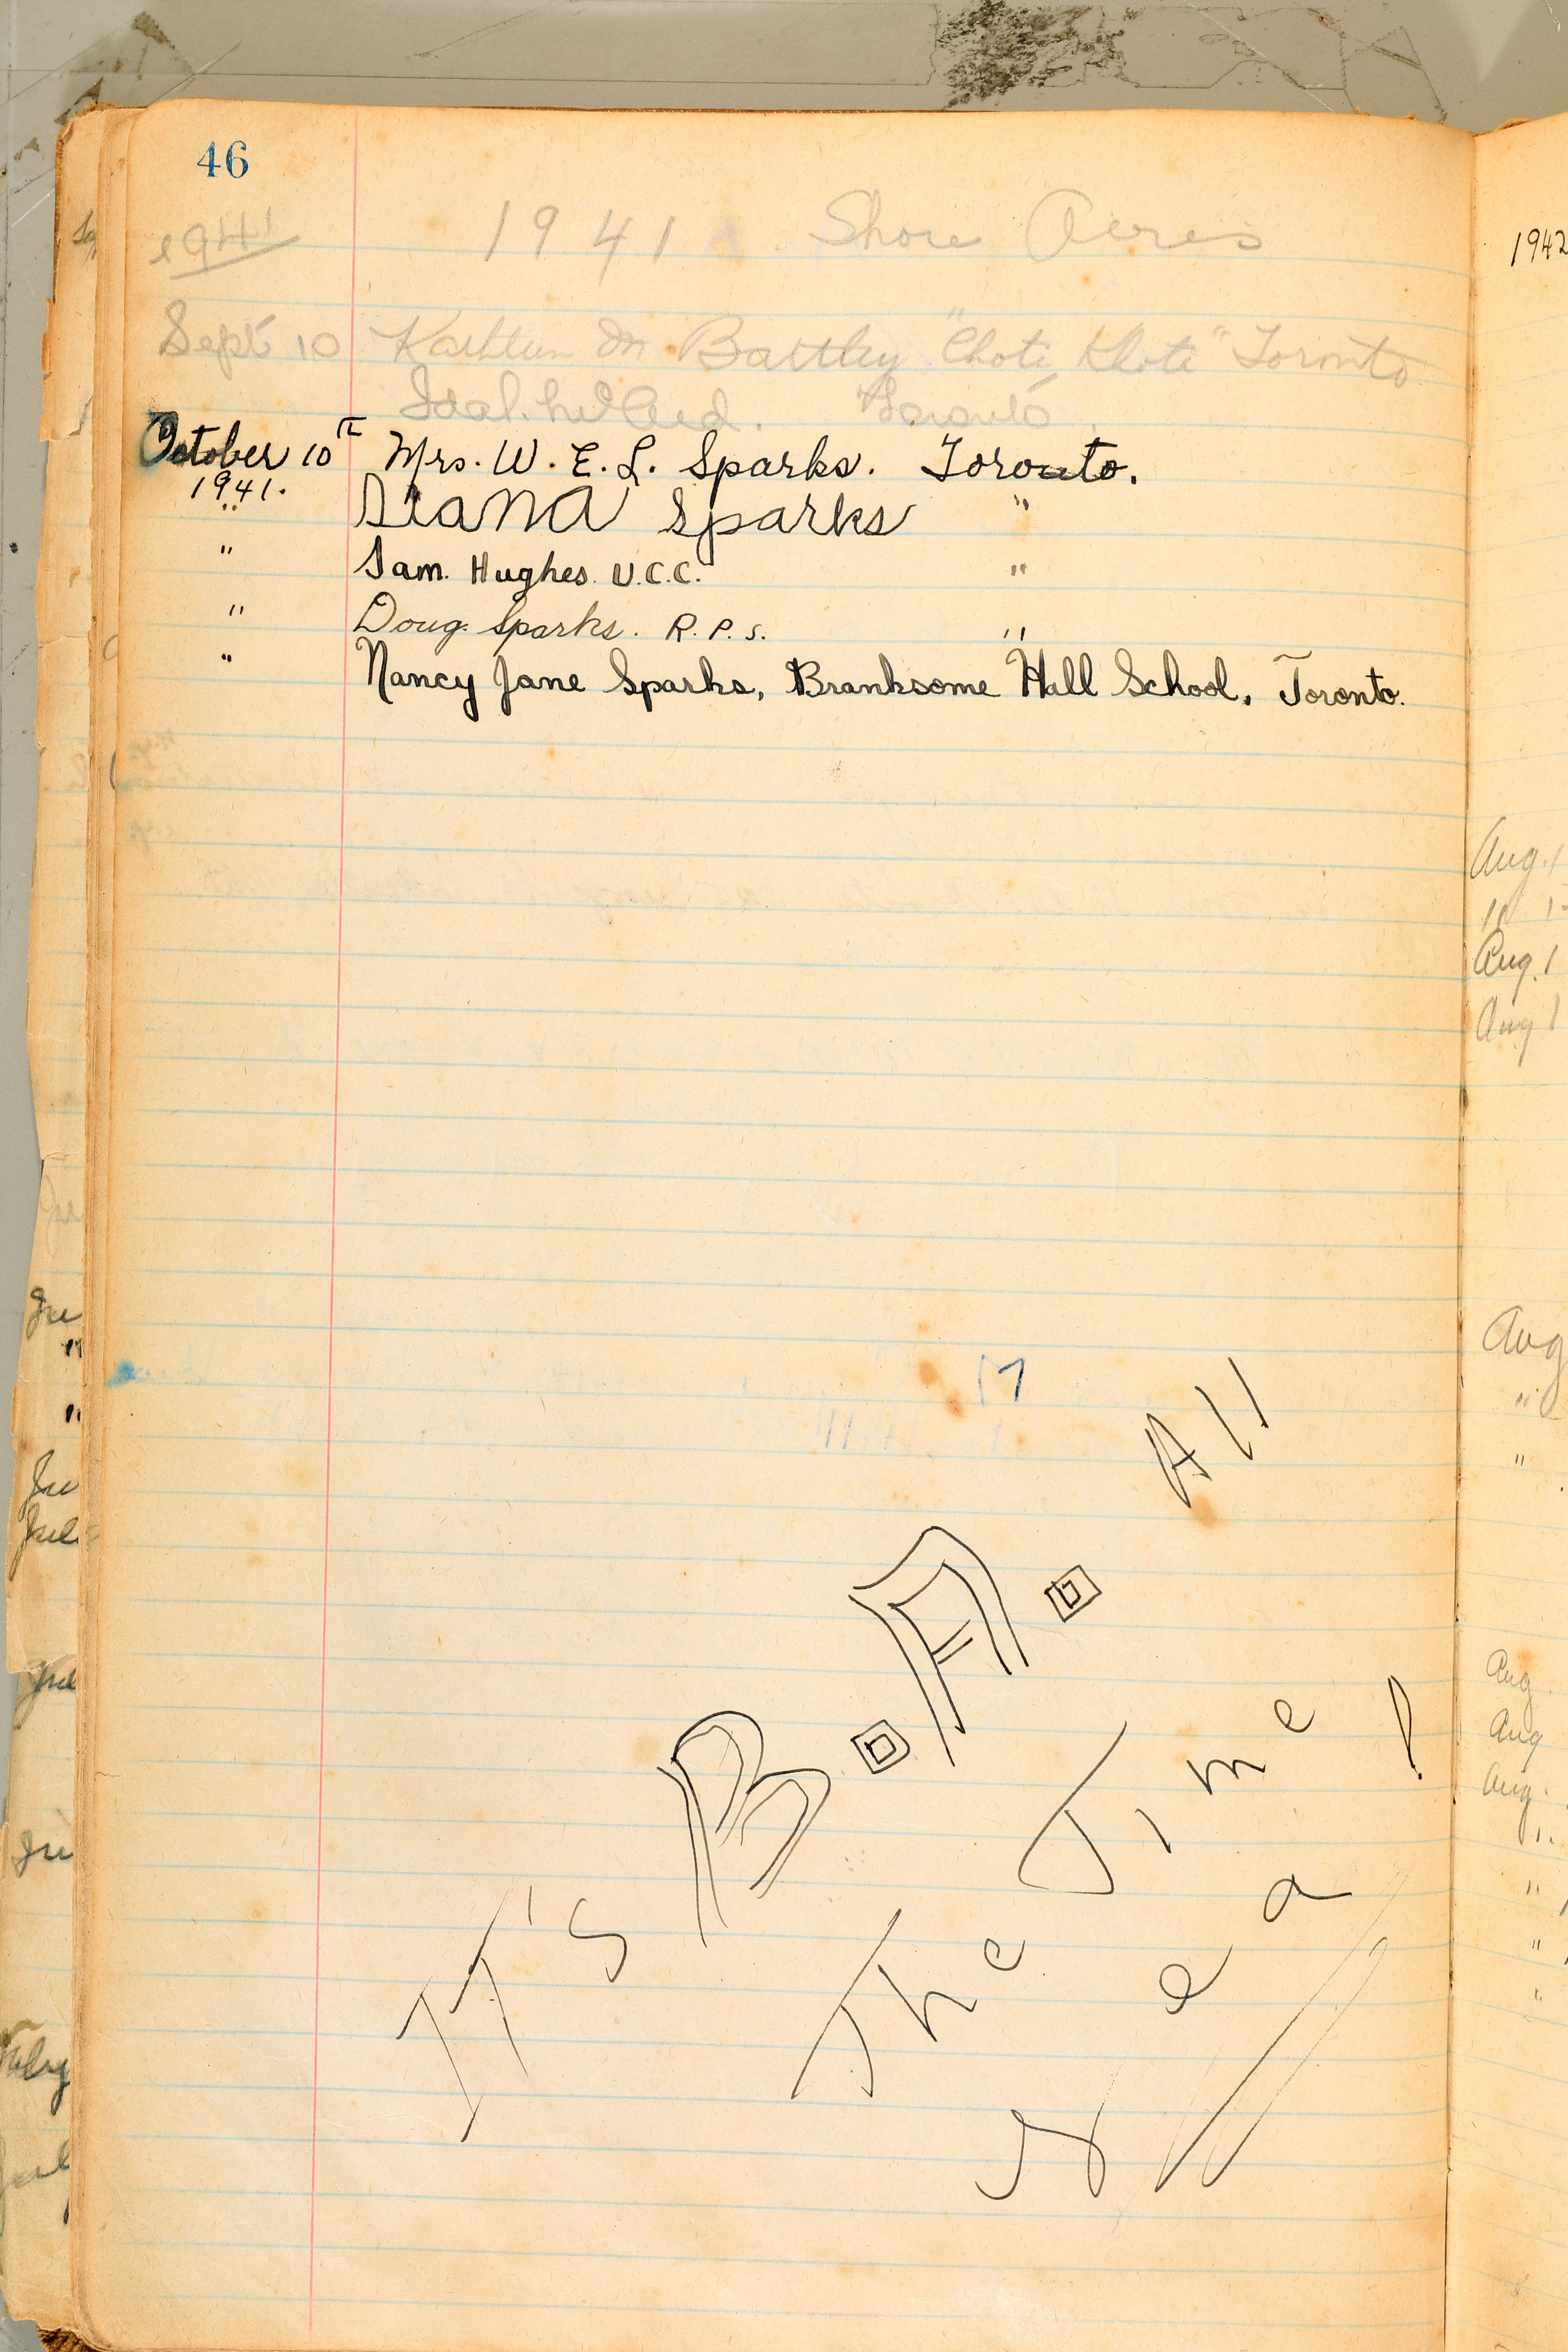 46
1941 1941 Shore Acres
Sept 10 Kathleen M Bartley "Chota Khota" Toronto
Toronto
October 10 Mrs. W. E. L. Sparks. Toronto.
1941.
" Diana Sparks "
" Sam. Hughes. U.C.C. "
" Doug. Sparks. R.P.S. "
" Nancy Jane Sparks, Branksome Hall School, Toronto.
17
It's B.A. All
The Time!
1942
Aug. 1
" 1
Aug. 1
Aug 1
Aug
"
"
Aug
Aug
Aug.
".
"
"
"